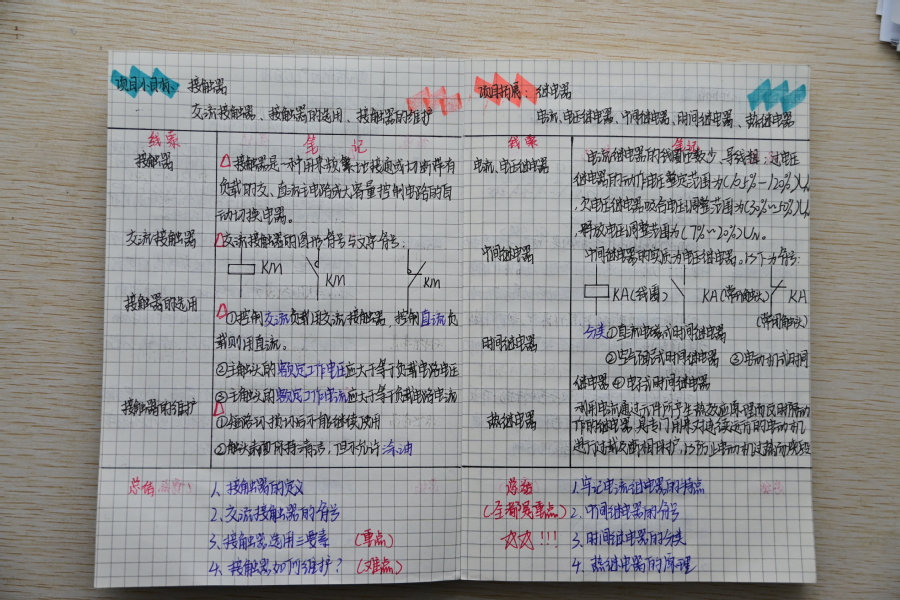 项目小目标：接触器
交流接触器、接触器的选用、接触器的维护
线索 笔记
接触器
△接触器是一种用来频繁地接通或切断带有
负载的交、直流主电路或大容量控制电路的自
动切换电器。
交流接触器
△交流接触器的图形符号与文字符号：
KM KM KM
接触器的选用
△①控制交流负载用交流接触器，控制直流负
载则用直流。
②主触头的额定工作电压应大于等于负载电路电压
③主触头的额定工作电流应大于等于负载电路电流
接触器的维护
△①短路环损坏后不能继续使用
②触头表面保持清洁，但不允许涂油
总结
1、接触器的定义
2、交流接触器的符号
3、接触器选用三要素（重点）
4、接触器如何维护？（难点）
项目拓展：继电器
电流、电压继电器、中间继电器、时间继电器、热继电器
线索 笔记
电流、电压继电器
电流继电器的线圈匝数少、导线粗；过电压
继电器的动作电压整定范围为(105%~120%)Un
，欠电压继电器吸合电压调整范围为(30%~50%)Un
，释放电压调整范围为(7%~20%)UN。
中间继电器
中间继电器的实质为电压继电器。以下为符号：
KA(线圈) KA(常开触头) KA
(常闭触头)
时间继电器
分类①直流电磁式时间继电器
②空气阻尼式时间继电器 ③电动机式时间
继电器④电子式时间继电器
热继电器
利用电流通过元件所产生热效应原理而反时限动
作的继电器，是专门用来对连续运行的电动机
进行过载及断相保护，以防止电动机过热而烧毁
总结
(全都是重点)
好好!!!
1、牢记电流继电器的特点
2、中间继电器的符号
3、时间继电器的分类
4、热继电器的原理